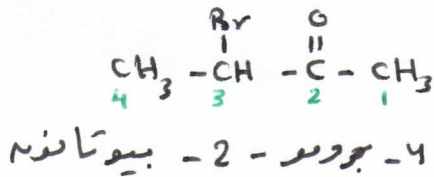 Br O
CH₃ - CH - C - CH₃
4 3 2 1
- برومو - 2 - بيوتانون